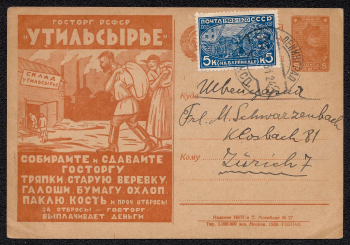 ГОСТОРГ РСФСР
"УТИЛЬСЫРЬЕ"
СКЛАД
УТИЛЬСЫРЬЯ
СОБИРАЙТЕ и СДАВАЙТЕ
ГОСТОРГУ
ТРЯПКИ, СТАРУЮ ВЕРЕВКУ,
ГАЛОШИ, БУМАГУ, ОХЛОП.
ПАКЛЮ, КОСТЬ и ПРОЧ. ОТБРОСЫ
ЗА ОТБРОСЫ - ГОСТОРГ
ВЫПЛАЧИВАЕТ ДЕНЬГИ
ПОЧТА 1905-1930 СССР
5К НА БАРРИКАДЕ К5
ЛЕНИНГРАД
Куда
Швейцария
Frl. M. Schwarzenbach
Klosbach 81
Кому
Zürich 7
Издание НКПиТ